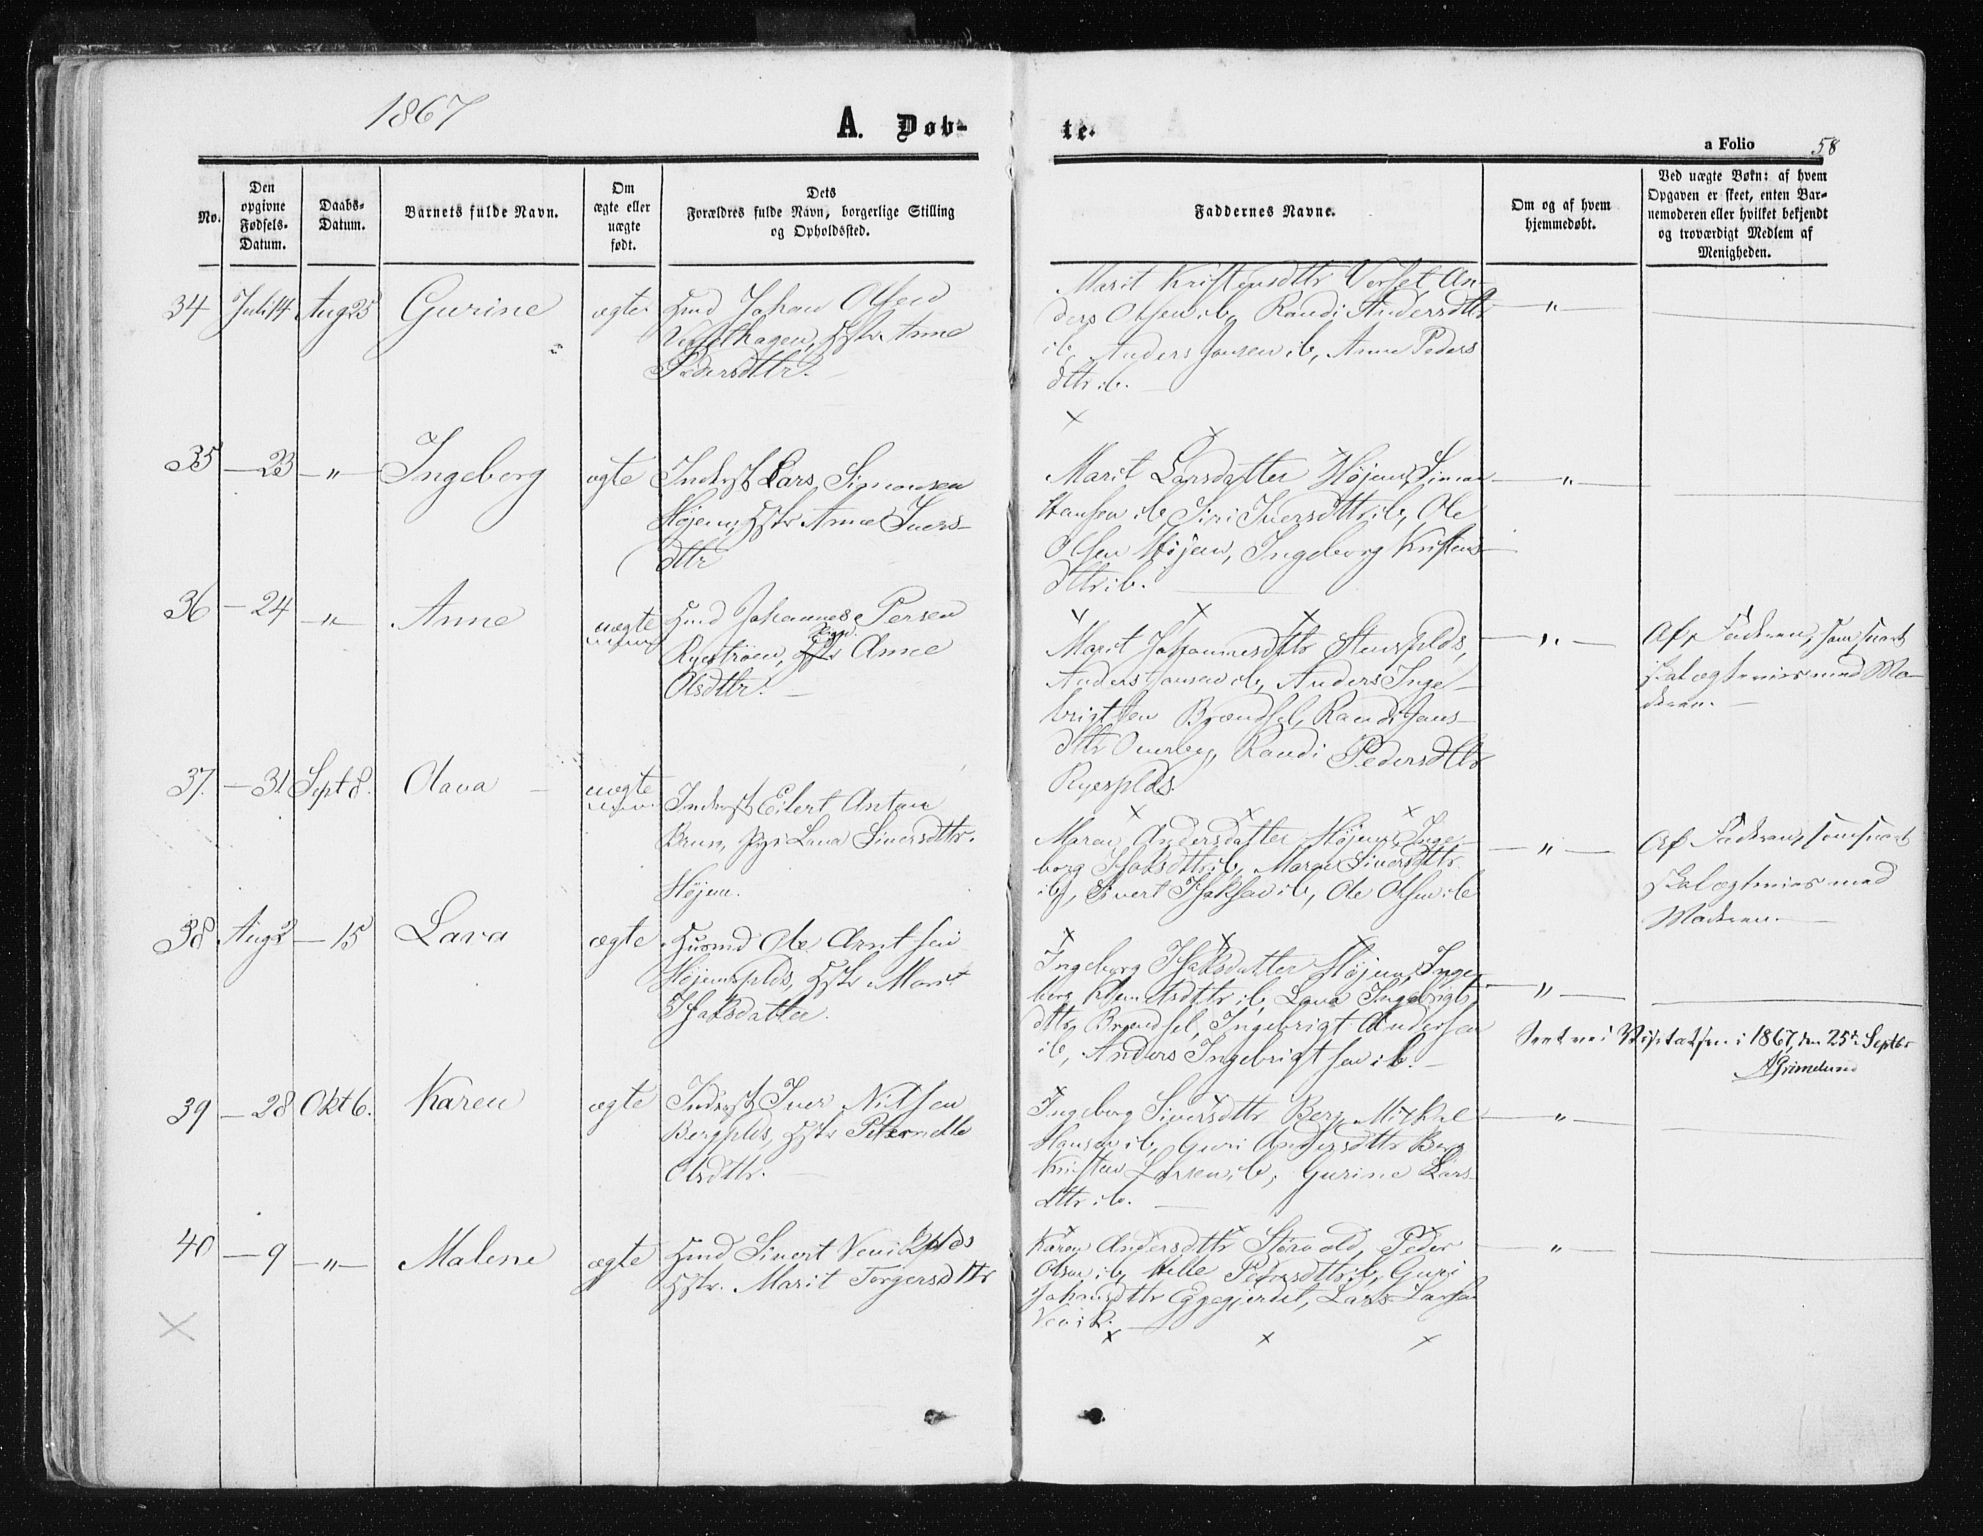 1867
A. Døb-
te.
a Folio 58
No.
Den opgivne Fødsels-Datum.
Daabs-Datum.
Barnets fulde Navn.
Om ægte eller uægte født.
Dets Forældres fulde Navn, borgerlige Stilling og Opholdssted.
Faddernes Navne.
Om og af hvem hjemmedøbt.
Ved uægte Børn: af hvem Opgaven er skeet, enten Barnemoderen eller hvilket bekjendt og troværdigt Medlem af Menigheden.
34 Juli 14 Aug 25 Gurine ægte Hmd Johan Olsen
Anne
Pedersdttr.
Marit Kristensdttr An-
ders Olsen ib, Randi Andersdttr
ib, Anders Jonsen ib, Anne Peders
dttr ib.
35 - 23 - " - Ingeborg ægte Inderst Lars Simonsen
Højem, Hstr Anne Ivers-
dttr
Marit Larsdatter Højem, Simon
Hansen ib, Siri Iversdttr ib, Ole
Olsen Højem, Ingeborg Kristens-
dttr ib.
36 - 24 - " - Anne uægte Hmd Johannes Persen
Ryestrøen, Pige Anne
Olsdttr. -
Marit Johannesdttr
Anders Jonsen ib, Anders Inge-
brigtsen Brændsel, Randi Jons-
dttr Overby, Randi Pedersdttr
Ryesplds.
Af Faderen, som snart
skal ægtevies med Mo-
deren. -
37. - 31 Sept 8. Olava - uægte Inderst Eilert Anton
Brun, Pige Lava Siversdttr.
Højem.
Maren Andersdatter Højem, Inge-
borg Isaksdttr ib, Maren Siversdttr
ib, Sivert Isaksen ib, Ole Olsen ib
Af Faderen, som snart
skal ægtevies med
Moderen. -
38 Aug 2 - 15 Lava ægte Husmd Ole Arntsen
Højemsplds, Hstr Marit
Isaksdatter.
Ingeborg Isaksdatter Højem, Inge-
borg ib, Lava Ingebrigts
dttr Brændsel, Ingebrigt Andersen
ib, Anders Ingebrigtsen ib. -
Seet ved Visitatsen i 1867, den 25de Septbr
AGrimelund
39 - 28 Okt 6. Karen ægte Inderst Iver Nilsen
Bergplds, Hstr Peternelle
Olsdttr. -
Ingeborg Siversdttr Berg, Mikkel
Hansen ib, Guri Andersdttr Berg
Kristen Larsen ib, Gurine Lars-
dttr ib. -
40 - 9 - " - Malene ægte Hmd Sivert Vevikplds
Hstr. Marit Torgersdttr
Karen Andersdttr Peder
Olsen ib, Pedersdttr ib, Guri
Johansdttr Eggegjerdet, Lars Larsen
Vevik. -